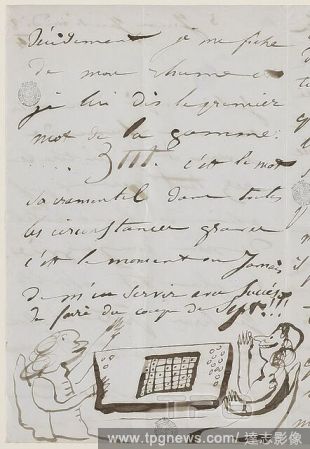 Décidément je me fiche
de mon rhume et
je lui dis le premier
mot de la gamme:
.... Zut. c'est le mot
sacramentel dans toutes
les circonstances graves
c'est le moment ou Jamais
de m'en servir avec succès
de faire du coup de Sept!!!
www.tpgnews.com/達志影像